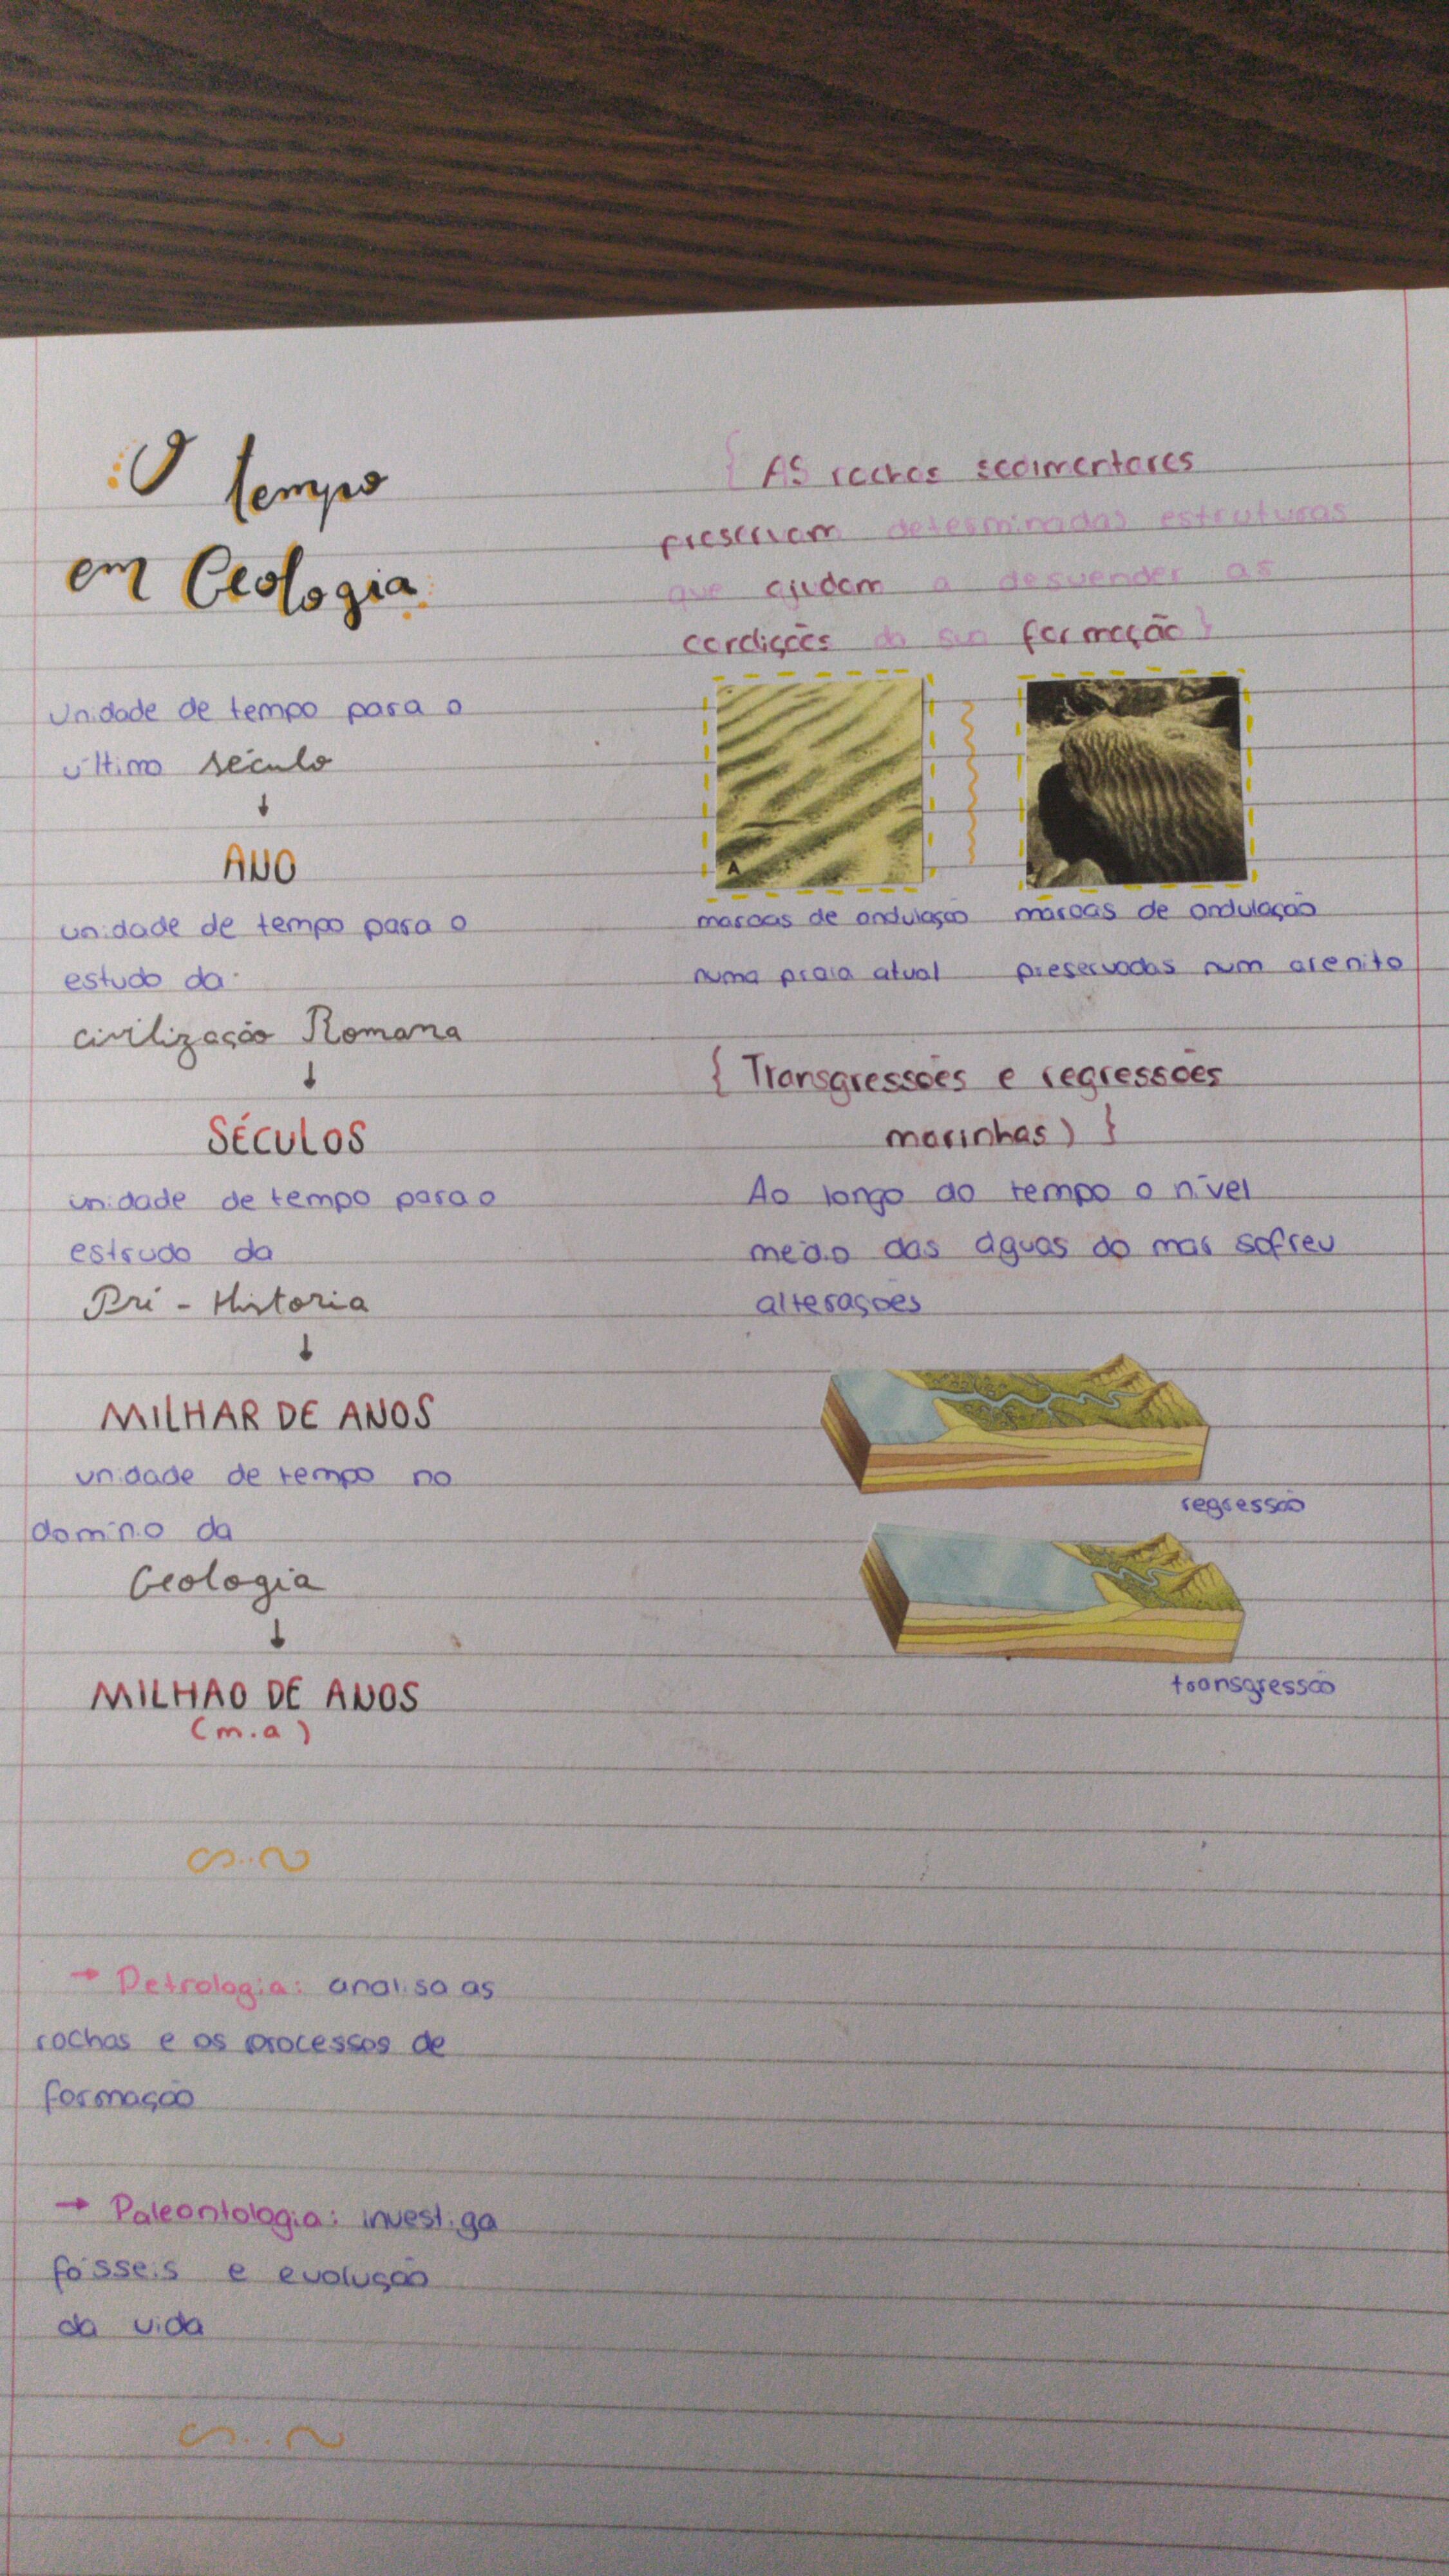 O tempo
em Geologia
Unidade de tempo para o
último século
↓
ANO
unidade de tempo para o
estudo da
civilização Romana
↓
SÉCULOS
unidade de tempo para o
estrudo da
Pré - Historia
↓
MILHAR DE ANOS
unidade de tempo no
domínio da
Geologia
↓
MILHAO DE ANOS
(m.a)
→ Petrologia: analisa as
rochas e os processos de
formação
→ Paleontologia: investiga
fósseis e evolução
da vida
{ AS rochas sedimentares
preservam determinadas estruturas
que ajudam a desvender as
condições da sua formação }
A
marcas de ondulação
numa praia atual
marcas de ondulação
preservadas num arenito
{ Transgressões e regressões
marinhas) }
Ao longo do tempo o nível
médio das águas do mar sofreu
alterações
regressão
transgressão